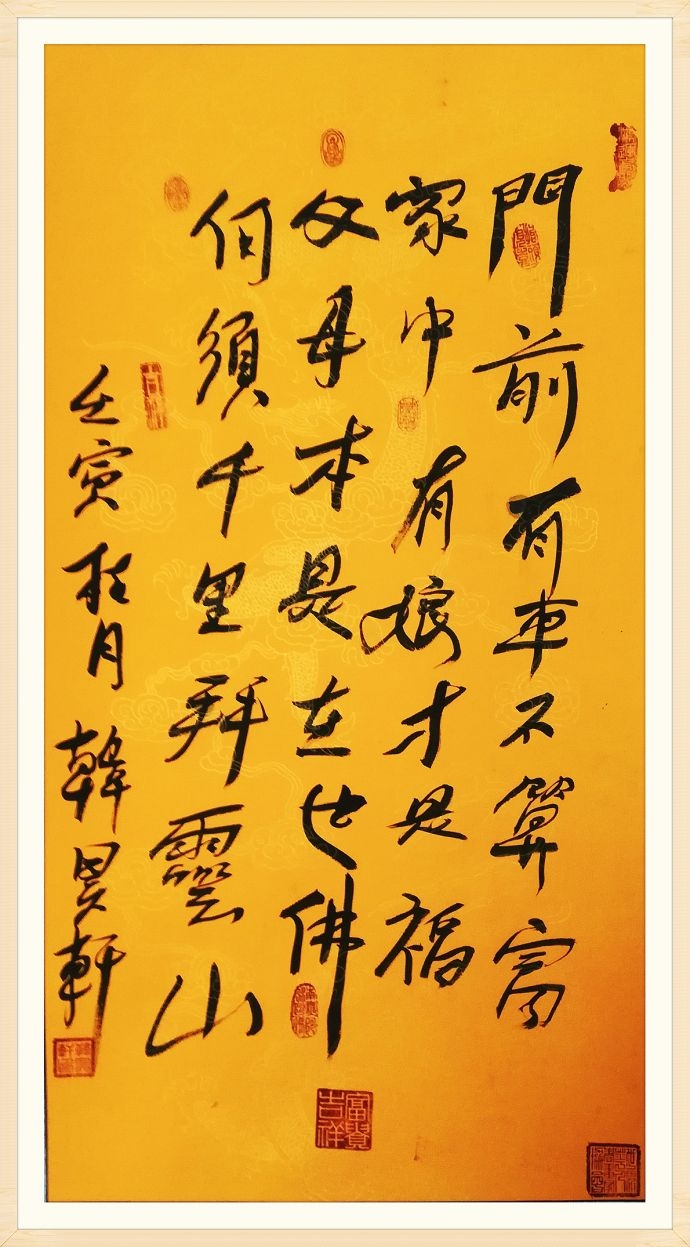 門前有車不算富
家中有娘才是福
父母本是在世佛
何須千里拜靈山
壬寅桂月 韓昊軒
富貴吉祥